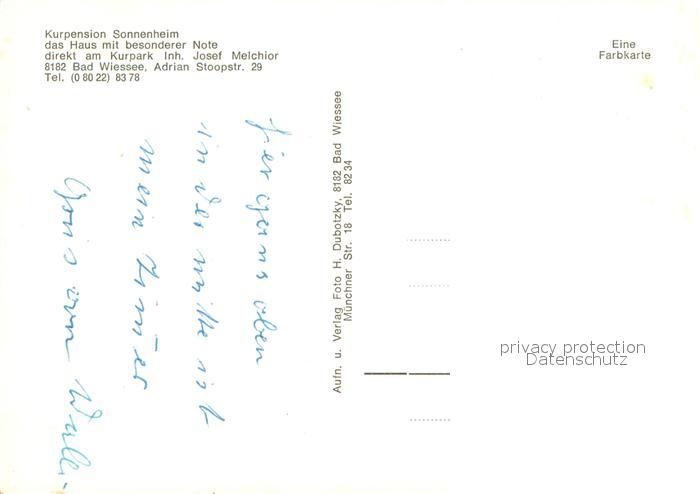 Kurpension Sonnenheim
das Haus mit besonderer Note
direkt am Kurpark Inh. Josef Melchior
8182 Bad Wiessee, Adrian Stoopstr. 29
Tel. (0 80 22) 83 78
Eine
Farbkarte
Aufn. u. Verlag Foto H. Dubotzky, 8182 Bad Wiessee
Münchner Str. 18 Tel. 82 34
oben
in der mitte ist
mein Zimer
privacy protection
Datenschutz